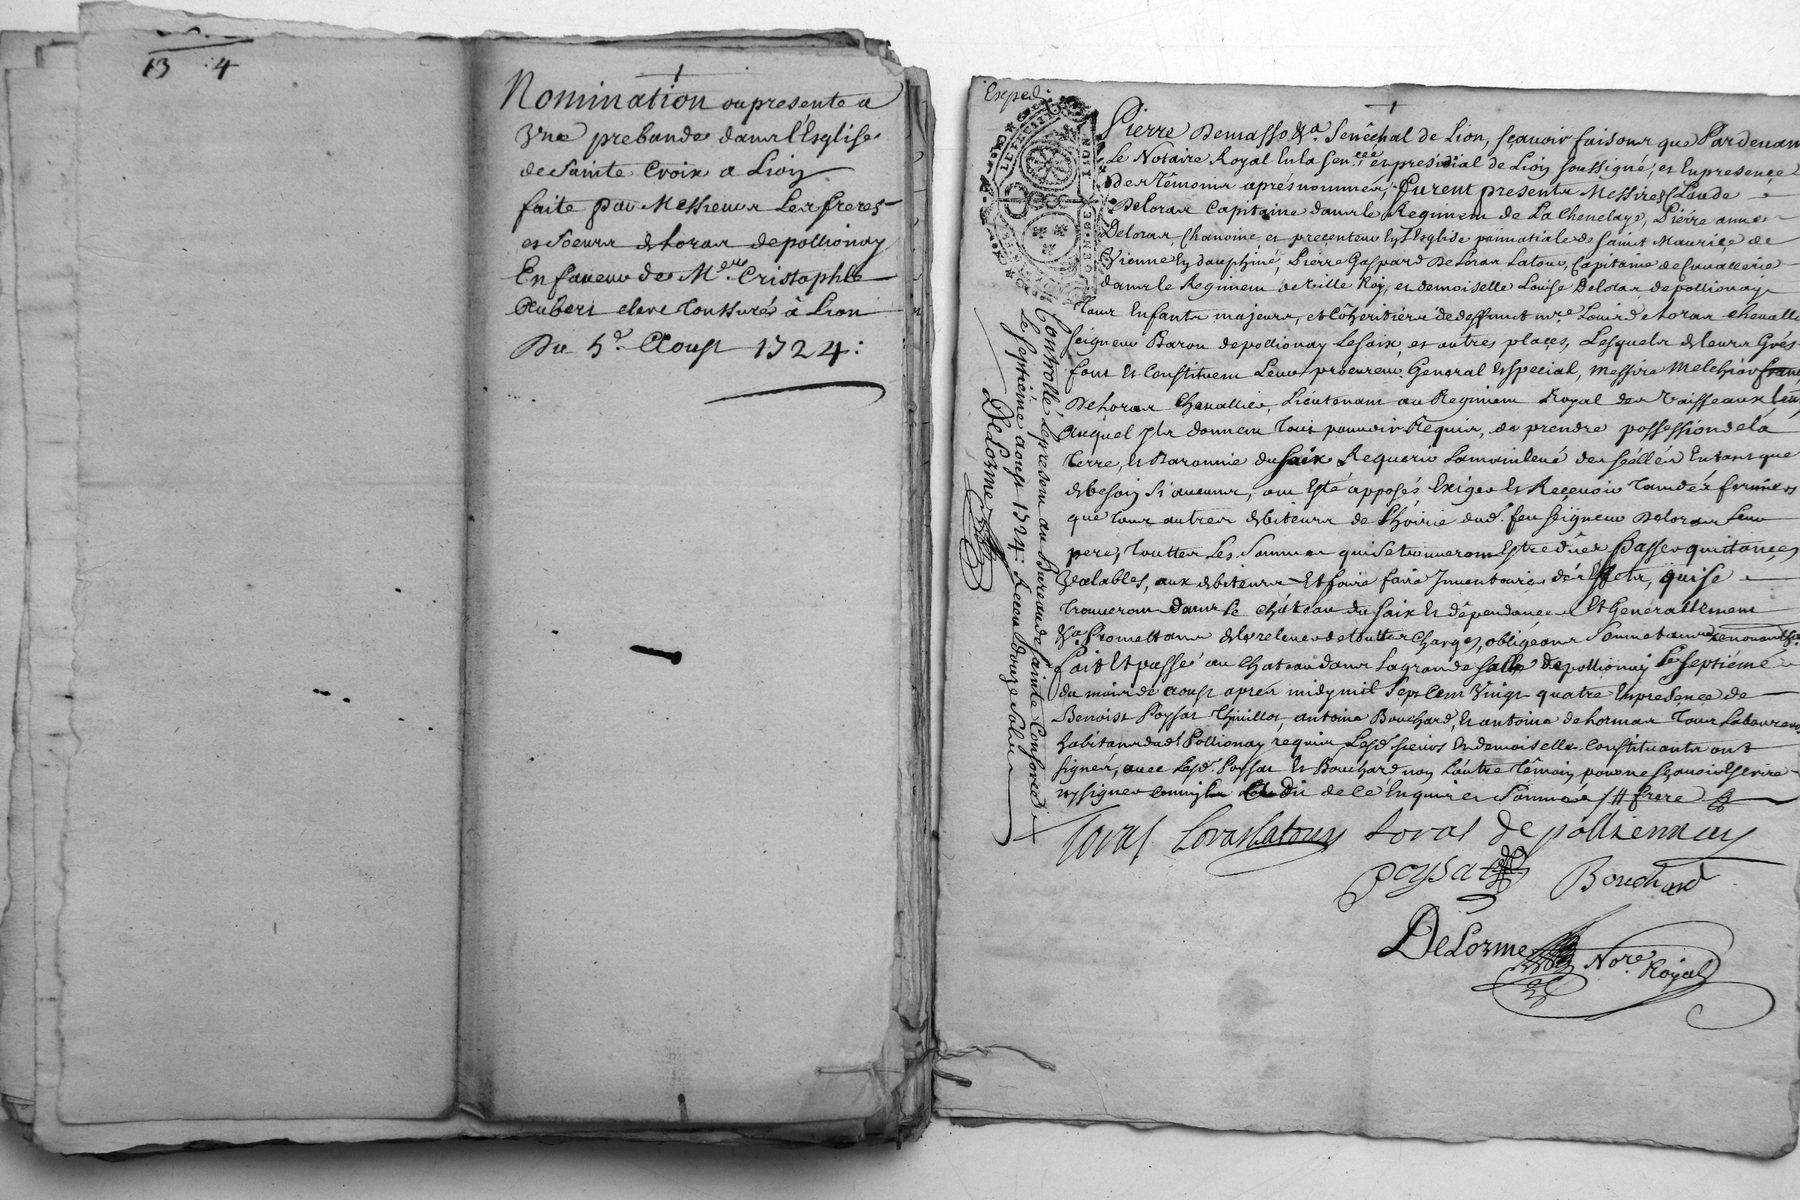 13 4
Nomination ou presente a
Vne prebande dans l'Esglise
de Sainte Croix a Lion
faite par Messieurs Les freres
et Soeurs de Loras de pollionay
En faveur de Mre Cristophle
Aubert clerc Tonsuré à Lion
Du 5e Aoust 1724:
Exped.
GEN. DE LION
Pierre Demasso &a Senêchal de Lion, sçavoir faisons que Pardevant
Le Notaire Royal En la Senée et presidial de Lion soussigné, et En presence
Des Têmoins aprés nommés, furent presents Messires Claude
Deloras Capitaine dans le Regiment de La Chenelaye, Pierre anne
Deloras, Chanoine et precenteur En L'Esglise primatiale de saint Maurice de
Vienne En dauphiné, Pierre Gaspard De Loras Latour, Capitaine de Cavallerie
dans le Regiment de Ville Roy, et demoiselle Louise Deloras de pollionay
Tous Enfants majeurs, et Cohéritiers de deffunt mre Louis de Loras chevalle
seigneur Baron de pollionay Le saix, et autres places, Lesquels de leurs Grés
font Et Constituent Leur procureur General Et special, Messire Melchior franç
De Loras Chevallier, Lieutenant au Regiment Royal des Vaisseaux leur
Auquel Ils donnent Tout pouvoir Requis, de prendre possession de la
Terre, et Baronnie du saix Requerir Lamainlevé des scéllés En tant que
de besoin si aucuns, ont Esté apposés Exiger Et Recevoir Tant des fermiers
que Tous autres debiteurs de L'hoirie dud. feu seigneur Deloras Leur
pere, Touttes Les Sommes qui se trouveront Estre dües Passer quittances
Vealables, aux debiteurs Et faire faire Inventaire des Effets, qui se
Trouveront dans Le château du saix Et dépendances Et Generallement
&a Promettans de Le relever de touttes Charges, obligeans Soumettans Renonceants &a
Fait Et passé au Chateau dans La grande salle de pollionay Le septiéme
du mois de aoust aprés midy mil Sept Cent Vingt quatre En presence de
Benoist Poysat Thuillor, antoine Bouchard, Et antoine de hormas Tous Laboureurs
habitans dudt Pollionay requis Lesd. sieurs Et demoiselle Constituants ont
signés, avec Lesd. Poysat Et Bouchard non L'autre Têmoin pour ne sçavoir Escrire
ny signer de ce Enquis et Sommés frere
Loras Loras Latour Loras de pollionnay
Poysat Bouchard
DeLorme Nore Royal
Controllé Le present au Bureau de Sainte Consorce
Le septiéme aoust 1724: Receu douze sols
DeLorme